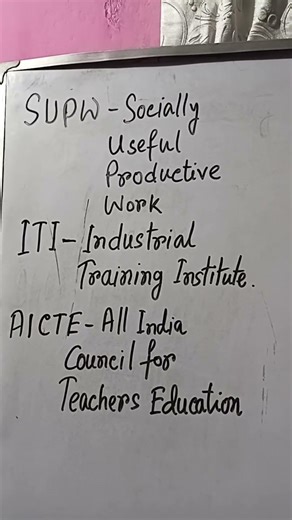 SUPW - Socially
Useful
Productive
Work
ITI - Industrial
Training Institute.
AICTE - All India
Council for
Teachers Education